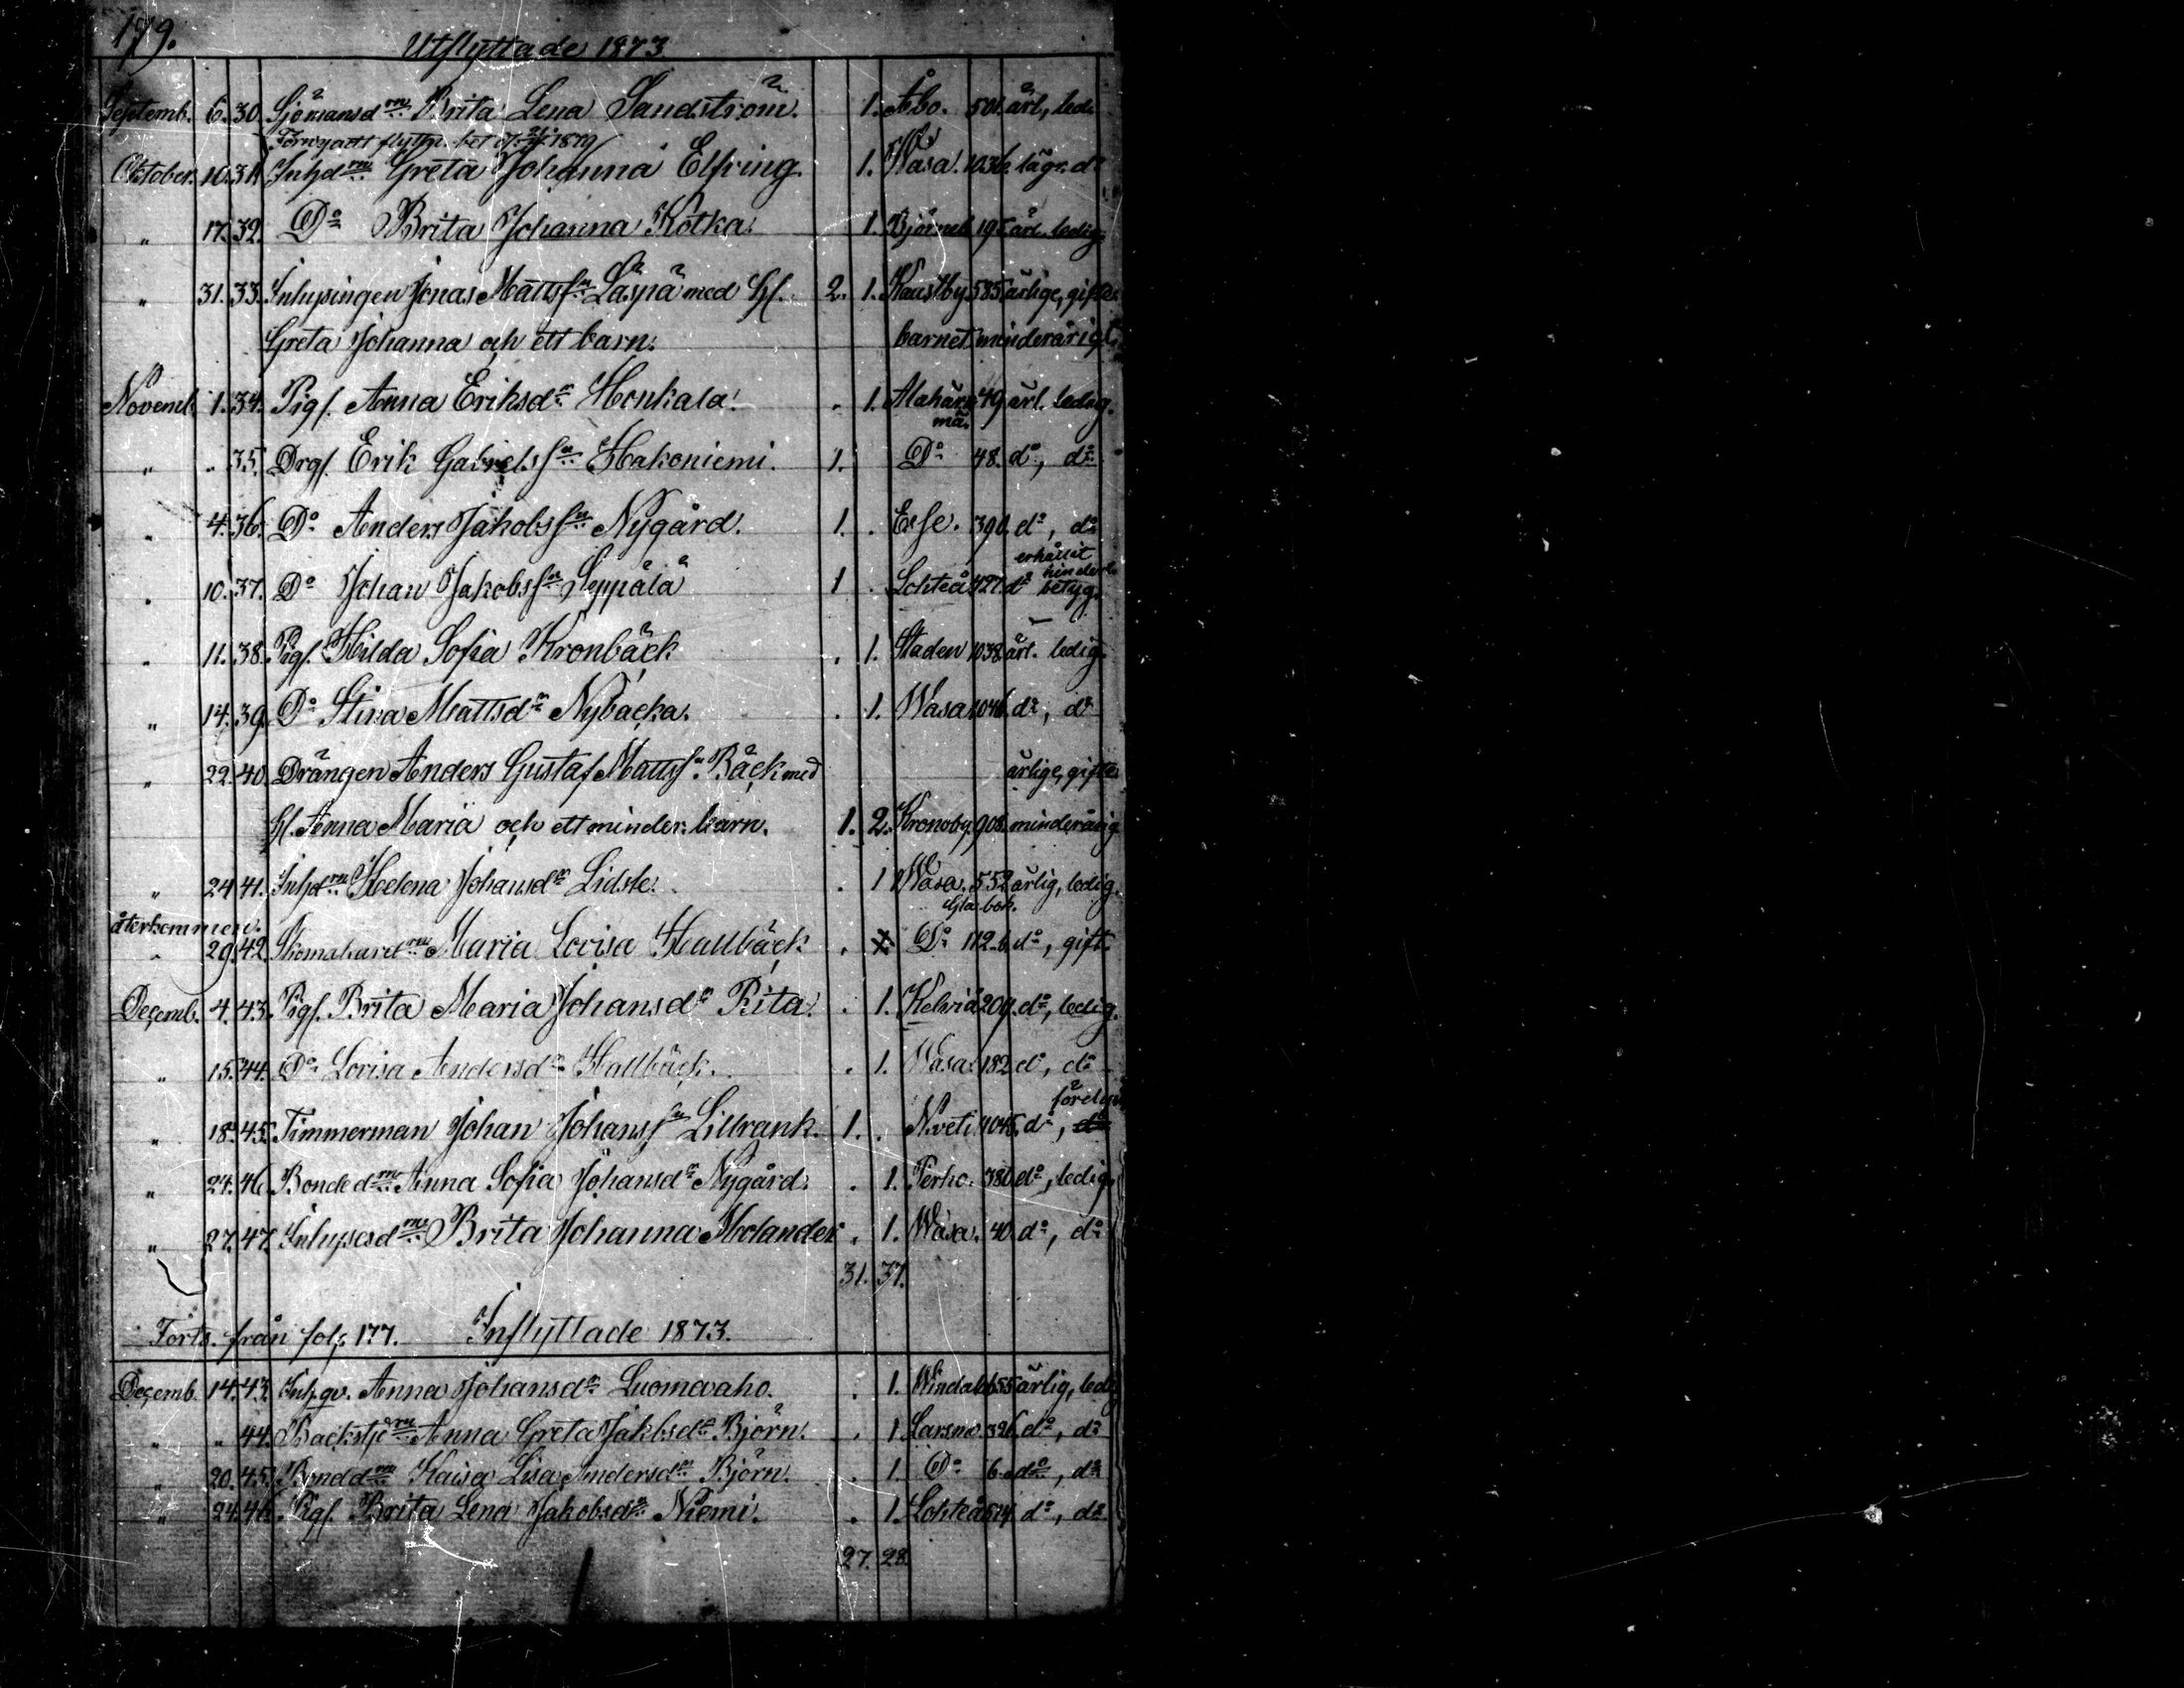 179.
Utflyttade 1873.
Septemb. 6. 30. Sjömansd:rn Brita Lena Sandström. 1. Åbo. 501. ärl, led.
Förnyadt flyttn. bet. 1879
Oktober. 10. 31. Inhd:rn Greta Johanna Elfving. 1. Wasa. 1036. lägr. d:o
" 17. 32. D:o Brita Johanna Kotka. 1. Björneb. 195 ärl. ledig.
" 31. 33. Inhysingen Jonas Mattss:n Läspä med H. 2. 1. Kaustby. 585 ärlige, gifte.
Greta Johanna och ett barn. barnet minderårigt.
Novemb. 1. 34. Pig. Anna Eriksd:r Honkala. . 1. Alahärmä. 49. ärl. ledig.
" " 35. Drg. Erik Gabrielss:n Hakoniemi. 1. D:o 48. d:o, d:o
" 4. 36. D:o Anders Jakobss:n Nygård. 1. . Esse. 390. d:o, d:o
" 10. 37. D:o Johan Jakobss:n Seppälä 1 . Lohteå 427. d:o erhållit hinderl. betyg.
" 11. 38. Pig. Hilda Sofia Kronbäck . 1. Staden 1038. ärl. ledig.
" 14. 39. D:o Stina Mattsd:r Nybacka. . 1. Wasa 1046. d:o, d:o
" 22. 40. Drängen Anders Gustaf Mattss:n Bäck med ärlige, gifte
H. Anna Maria och ett minder. barn. 1. 2. Kronoby. 908. minderårig
" 24. 41. Inhd:rn Helena Johansd:r Lidste. . 1 Wasa. 552 ärlig, ledig.
återkommen. Gla bok.
" 29. 42. Skomakared:rn Maria Lovisa Hallbäck . 1. D:o 112. d:o, gift.
Decemb. 4. 43. Pig. Brita Maria Johansd:r Rita. . 1. Kelviå 209. d:o, ledig.
" 15. 44. D:o Lovisa Andersd:r Hallbäck. . 1. Wasa. 182. d:o, d:o
" 18. 45. Timmerman Johan Johanss:n Lillrank. 1. . N.veti. 1045. d:o, d:o
" 24. 46. Bonded:rn Anna Sofia Johansd:r Nygård. . 1. Perho. 380. d:o, ledig.
" 27. 47. Inhysesd:rn Brita Johanna Molander . 1. Wasa. 40. d:o, d:o
31. 37.
Forts. från fol: 177. Inflyttade 1873.
Decemb. 14. 43. Inh.qv. Anna Johansd:r Luomaaho. . 1. Windala 655 ärlig, led
" " 44. Anna Greta Jakbsd:r Björn. . 1 Larsmo. 326. d:o, d:o
" 20. 45. Bondd:rn Kaisa Lisa Andersd:r Björn. . 1. D:o 6. d:o, d:o
" 24. 46. Pig. Brita Lena Jakobsd:r Niemi. . 1. Lohteå 514. d:o, d:o
27. 28.